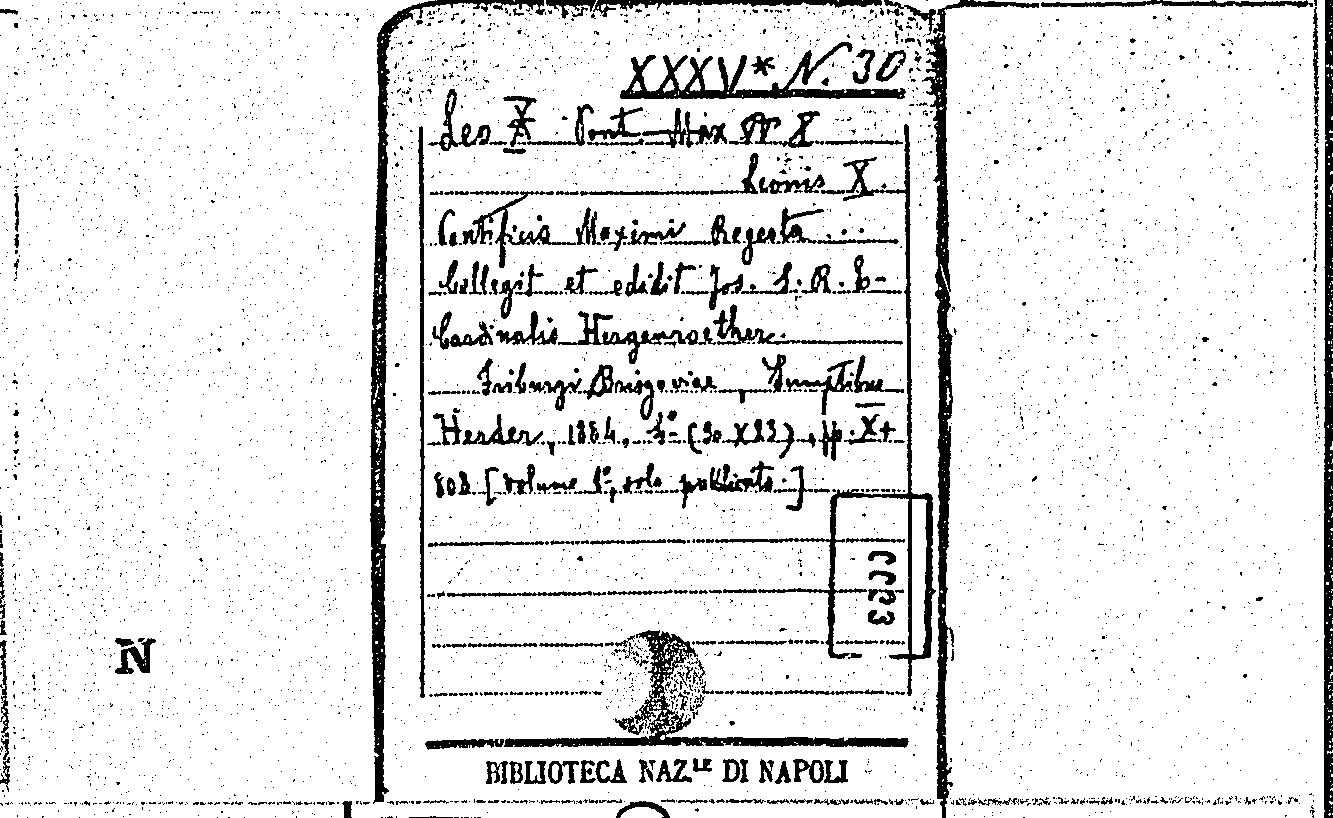 XXXV* N. 30
Leo X Pont. Max
Leonis X.
Pontificis Maximi Regesta ...
Collegit et edidit Jos. S. R. E-
Cardinalis Hergenroether.
Friburgi Brisgoviae, Sumptibus
Herder, 1884, 4º (30 X 23), pp. X+
808 [volume 1º, solo pubblicato.]
0093
N
BIBLIOTECA NAZ.LE DI NAPOLI